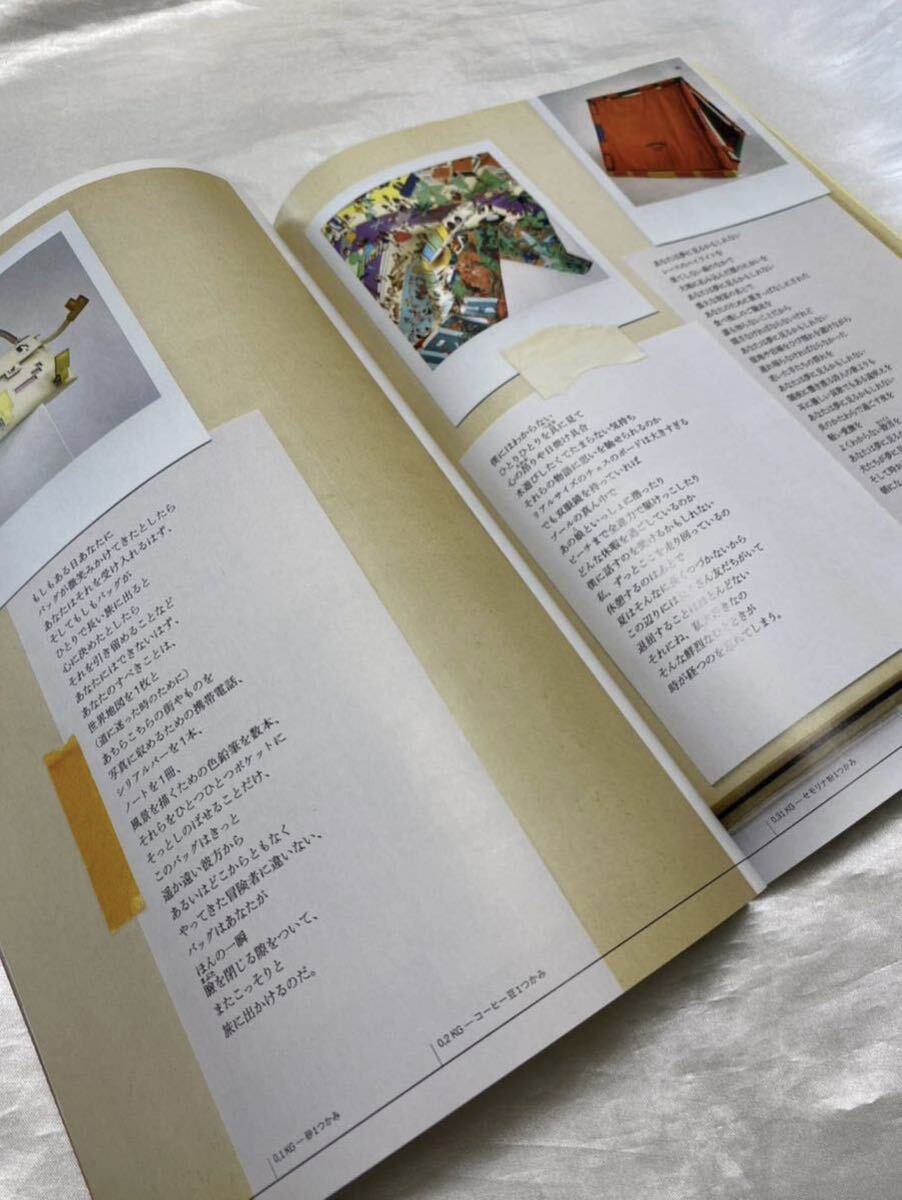 もしもある日あなたに
バッグが微笑みかけてきたとしたら
あなたはそれを受け入れるはず、
そしてもしもバッグが
ひとりで長い旅に出ると
心に決めたとしたら
それを引き留めることなど
あなたにはできないはず、
あなたのすべきことは、
世界地図を1枚と
(道に迷った時のために)
あちらこちらの街やものを
写真に収めるための携帯電話、
シリアルバーを1本、
ノートを1冊、
風景を描くための色鉛筆を数本、
それらをひとつひとつポケットに
そっとしのばせることだけ、
このバッグはきっと
遥か遠い彼方から
あるいはどこからともなく
やってきた冒険者に違いない、
バッグはあなたが
ほんの一瞬
瞼を閉じる隙をついて、
またこっそりと
旅に出かけるのだ。
0.1 KG — 砂1つかみ
0.2 KG — コーヒー豆1つかみ
僕にはわからない
ひとりひとりを具に見て
心の昂りや日焼け具合
水遊びしたくてたまらない気持ち
それらの物語に思いを馳せられるのか
リアルサイズのチェスのボードは大きすぎる
でも双眼鏡を持っていれば
プールの真ん中で
あの娘といっしょに潜ったり
ビーチまで全速力で駆けっこしたり
どんな休暇を過ごしているのか
僕に話すのを聞けるかもしれない
私、ずっとここを走り回っているの
休憩するのはあとで
夏はそんなに長くつづかないから
この辺りには さん友だちがいて
退屈することはほとんどない
それにね、私 きなの
そんな鮮烈な ときが
時が経つのを忘れてしまう。
0.31 KG — セモリナ粉1つかみ
あなたは夢に見るかもしれない
レースのハイライトを
果てしない海のなかで
あなたは夢に見るかもしれない
食べ残しのご馳走を
あなたは夢に見るかもしれない
あなたは夢に見るかもしれない
あなたは夢に見るかもしれない